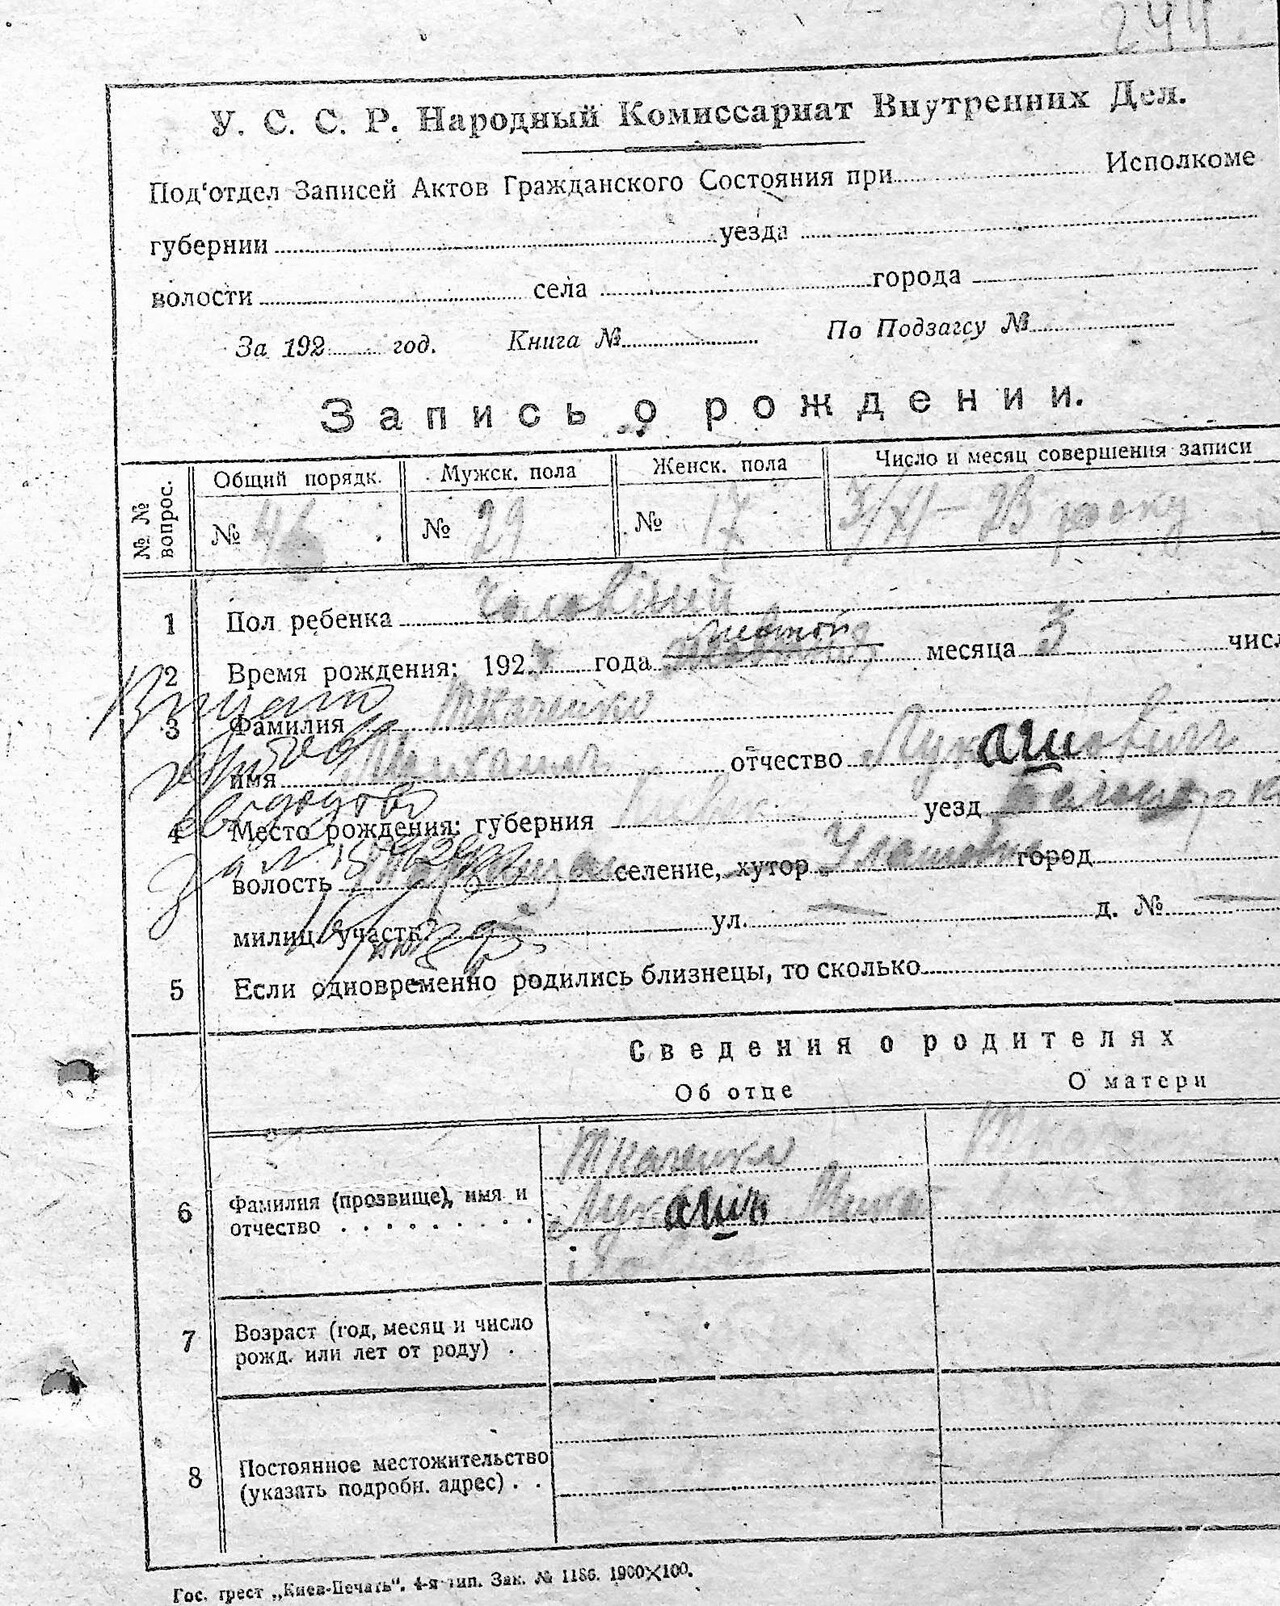 244
У. С. С. Р. Народный Комиссариат Внутренних Дел.
Под'отдел Записей Актов Гражданского Состояния при Исполкоме
губернии уезда
волости села города
За 192 год. Книга № По Подзагсу №
Запись о рождении.
№ № вопрос.
Общий порядк. Мужск. пола Женск. пола Число и месяц совершения записи
№ 46 № 29 № 17 3/XI - 23 року
1 Пол ребенка чоловічий
2 Время рождения: 192 года месяца 3 числ
3 Фамилия Ткаченко
имя отчество Лукашович
4 Место рождения: губерния Київська уезд
волость селение, хутор город
милиц. участь ул. — д. № —
5 Если одновременно родились близнецы, то сколько
Сведения о родителях
Об отце О матери
Ткаченко Ткаченко
6 Фамилия (прозвище), имя и
отчество
Лукаш
7 Возраст (год, месяц и число
рожд. или лет от роду)
8 Постоянное местожительство
(указать подробн. адрес)
Гос. трест „Киев-Печать". 4-я тип. Зак. № 1186. 1900×100.